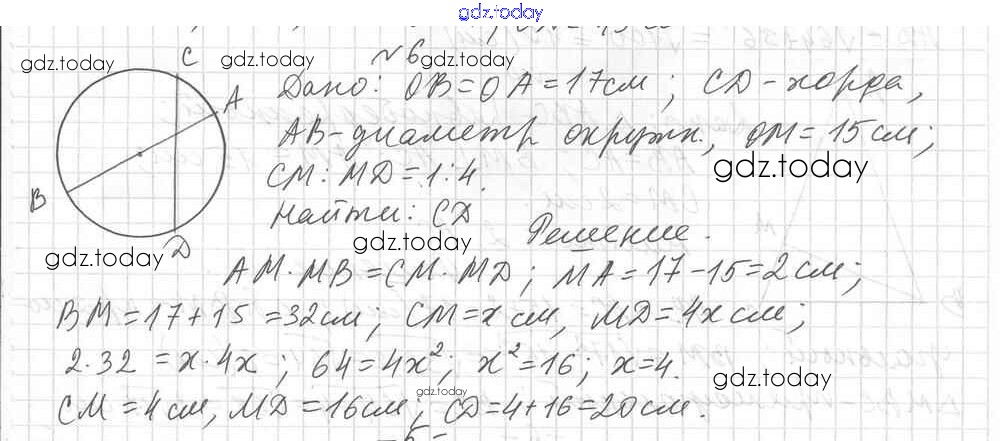 gdz.today
№6
gdz.today gdz.today gdz.today
C
A
B
D
Дано: OB=OA=17см; CD-хорда,
AB-диаметр окружн., OM=15см;
gdz.today
CM:MD=1:4.
Найти: CD
gdz.today gdz.today
Решение.
AM·MB=CM·MD; MA=17-15=2см;
BM=17+15=32см, CM=x см, MD=4x см;
2·32=x·4x; 64=4x²; x²=16; x=4.
gdz.today gdz.today
CM=4см, MD=16см; CD=4+16=20см.